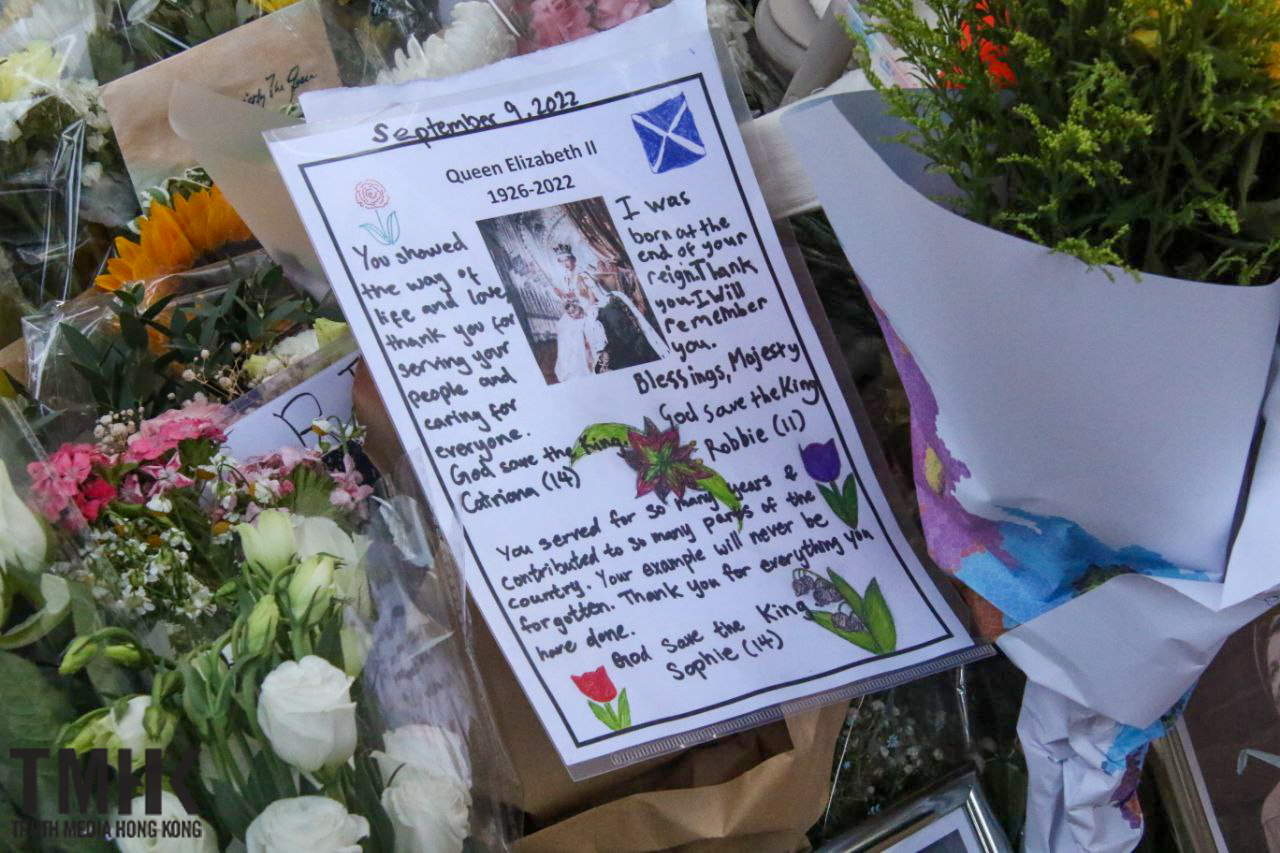 September 9, 2022
Queen Elizabeth II
1926-2022
You showed
the way of
life and love
thank you for
serving your
people and
caring for
everyone.
God save the King.
Catriona (14)
I was
born at the
end of your
reign.Thank
you.I will
remember
you.
Blessings, Majesty
God save the King
Robbie (11)
You served for so many years &
contributed to so many parts of the
country. Your example will never be
forgotten. Thank you for everything you
have done.
God save the King
Sophie (14)
TMHK
TRUTH MEDIA HONG KONG